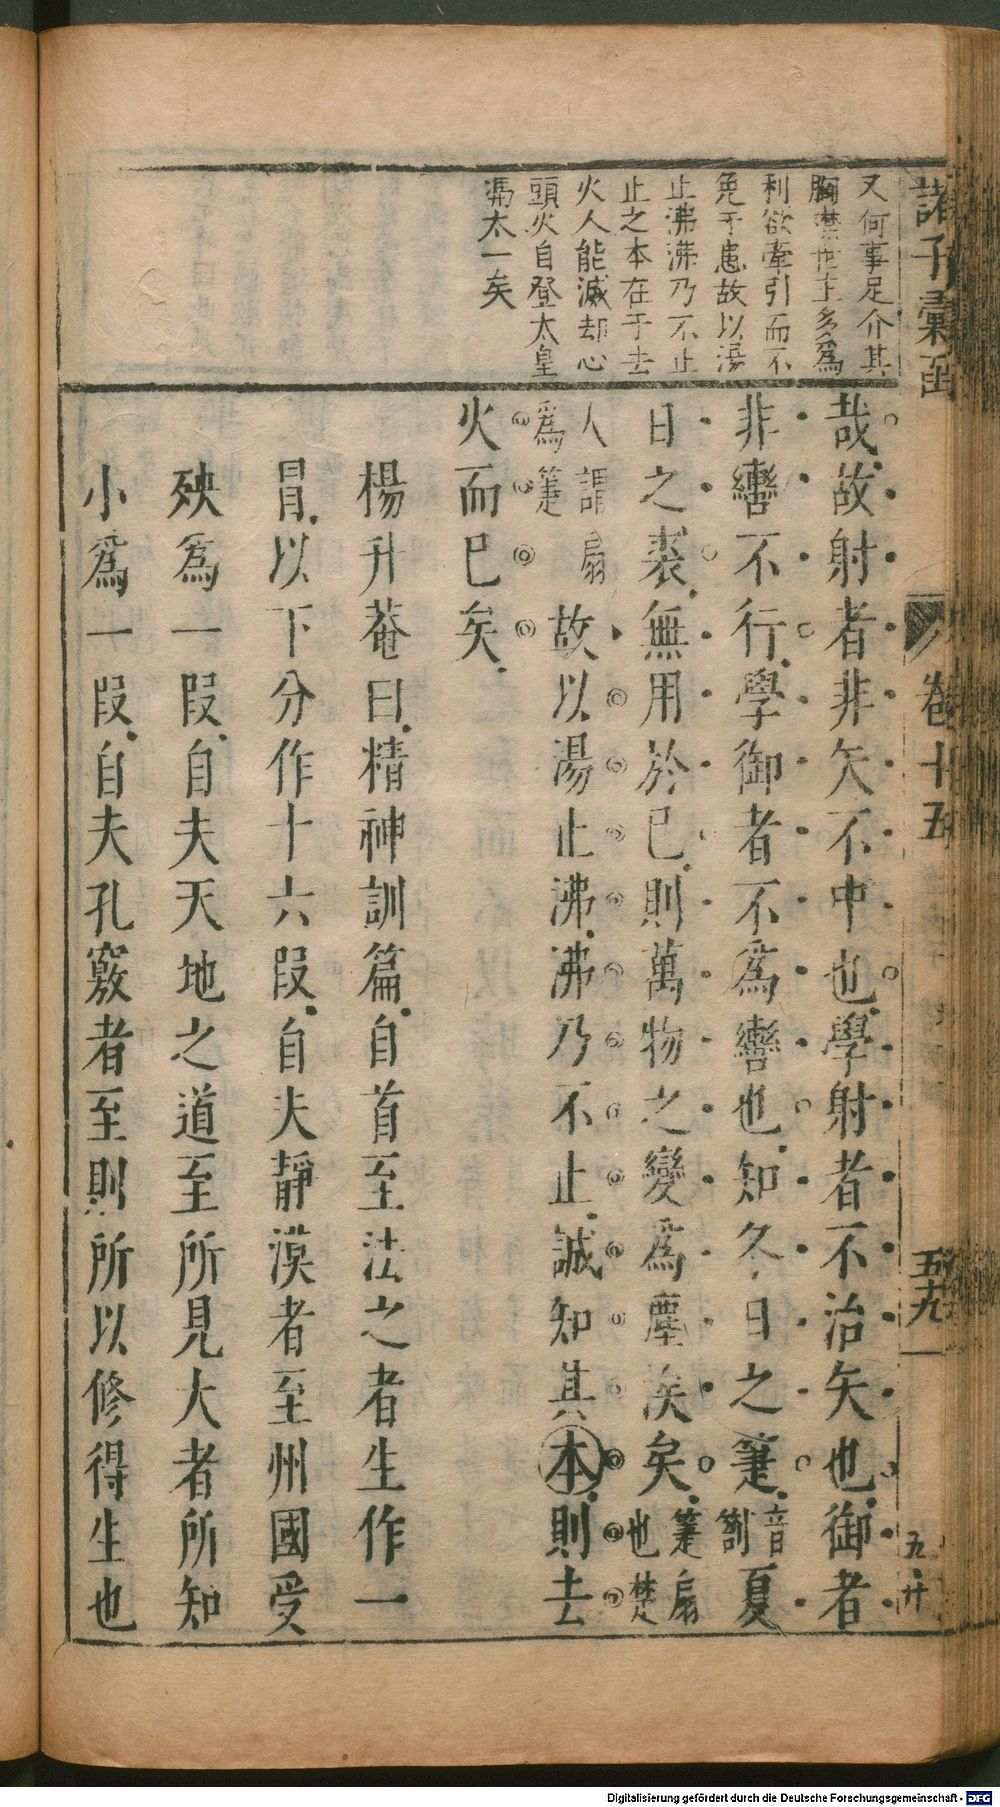 諸子彙函
卷十五
五十九
又何事足介其
胸襟世主多爲
利欲牽引而不
免于患故以湯
止沸沸乃不止
止之本在于去
火人能滅却心
頭火自登太皇
馮太一矣
哉故射者非矢不中也學射者不治矢也御者
非轡不行學御者不爲轡也知冬日之箑音劄夏
日之裘無用於已則萬物之變爲塵埃矣箑扇也楚
人謂扇爲箑故以湯止沸沸乃不止誠知其本則去
火而已矣
楊升菴曰精神訓篇自首至法之者生作一
冒以下分作十六段自夫靜漠者至州國受
殃爲一段自夫天地之道至所見大者所知
小爲一段自夫孔竅者至則所以修得生也
Digitalisierung gefördert durch die Deutsche Forschungsgemeinschaft - DFG